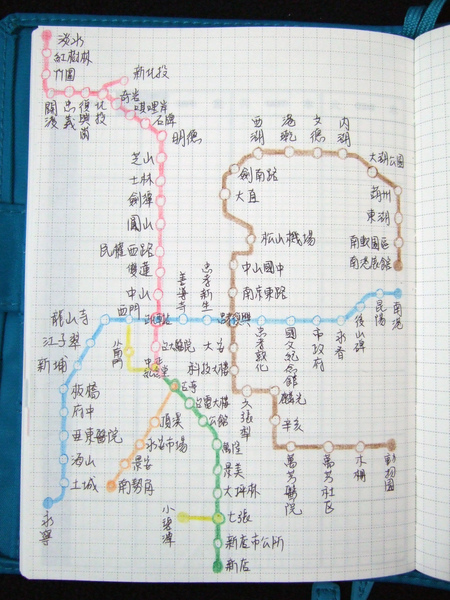 淡水
紅樹林
竹圍
關渡
忠義
復興崗
北投
新北投
奇岩
唭哩岸
石牌
明德
芝山
士林
劍潭
圓山
民權西路
雙連
中山
西湖
港墘
文德
內湖
大湖公園
葫州
東湖
南軟園區
南港展館
劍南路
大直
松山機場
中山國中
南京東路
善導寺
忠孝新生
忠孝復興
忠孝敦化
國父紀念館
市政府
永春
後山埤
昆陽
南港
西門
龍山寺
江子翠
新埔
板橋
府中
亞東醫院
海山
土城
永寧
小南門
台大醫院
中正紀念堂
古亭
台電大樓
公館
萬隆
景美
大坪林
七張
小碧潭
新店市公所
新店
頂溪
永安市場
景安
南勢角
大安
科技大樓
六張犁
麟光
辛亥
萬芳醫院
萬芳社區
木柵
動物園